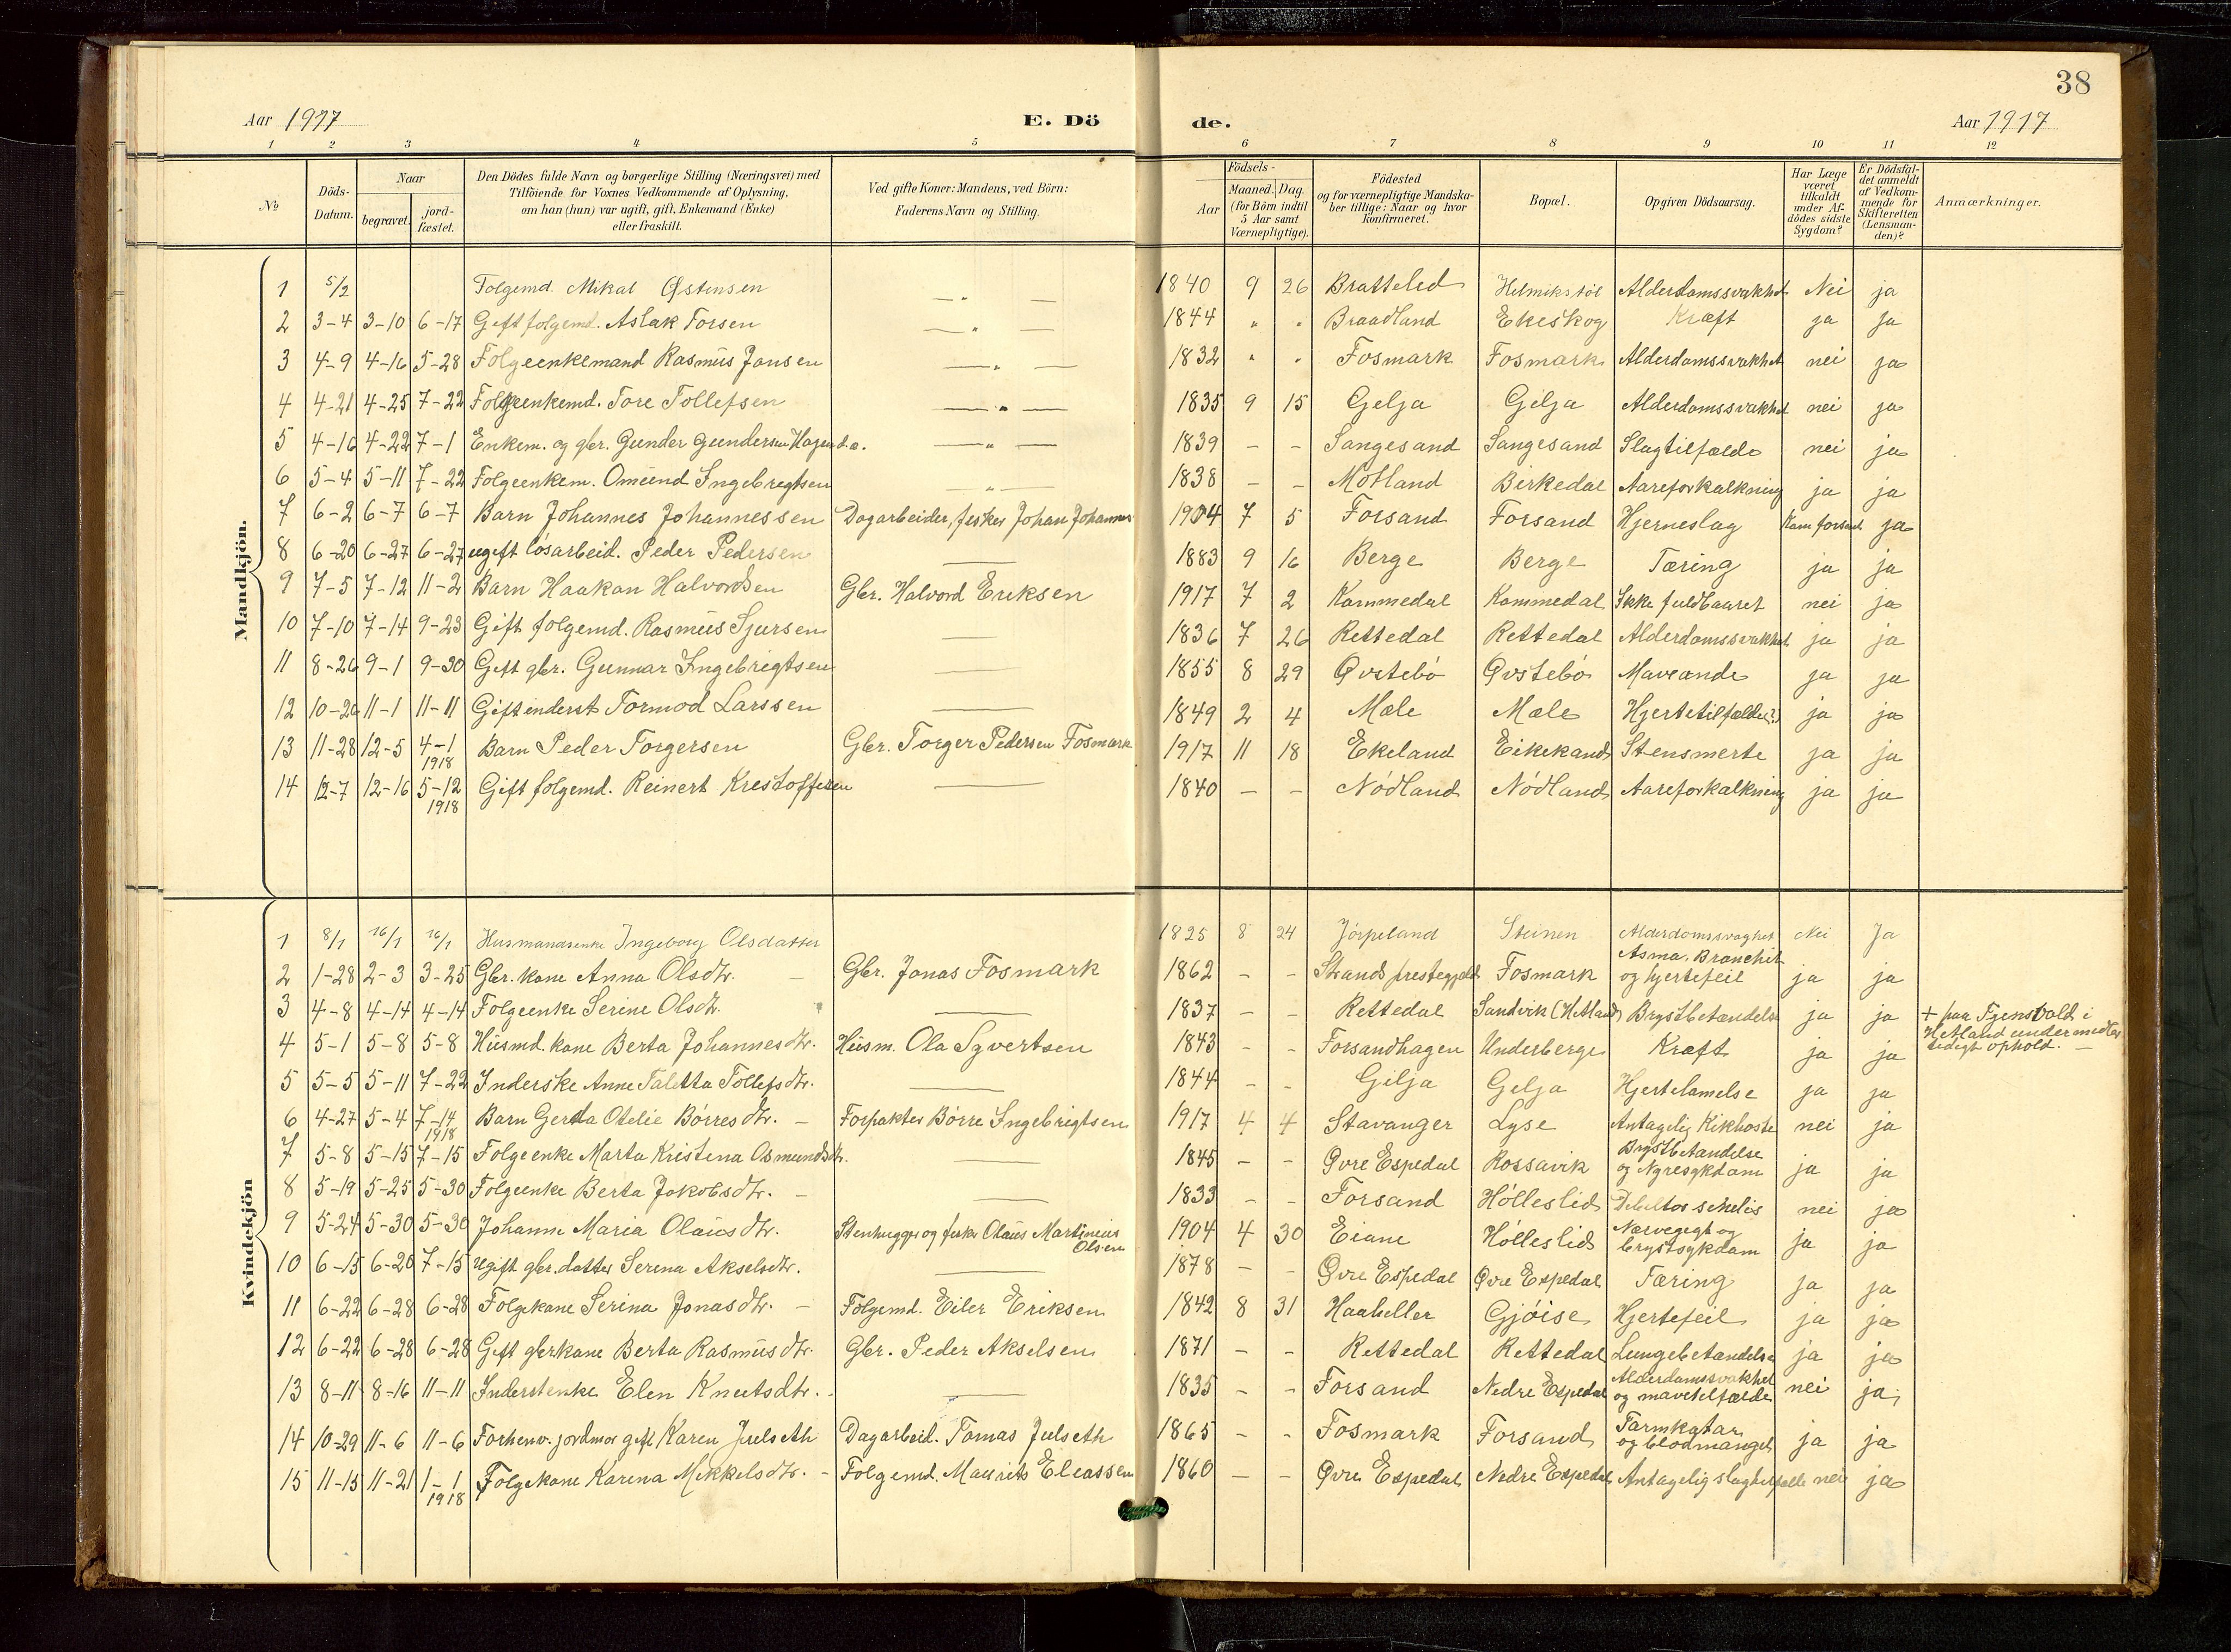 38
Aar 1917 E. Dö de. Aar 1917
1 2 3 4 5 6 7 8 9 10 11 12
No
Döds-Datum.
Naar
begravet. jord-fæstet.
Den Dödes fulde Navn og borgerlige Stilling (Næringsvei) med
Tilföiende for Voxnes Vedkommende af Oplysning,
om han (hun) var ugift, gift, Enkemand (Enke)
eller fraskilt.
Ved gifte Koner: Mandens, ved Börn:
Faderens Navn og Stilling.
Födsels-
Aar Maaned. Dag.
(for Börn indtil
5 Aar samt
Værnepligtige).
Födested
og for værnepligtige Mandska-
ber tillige: Naar og hvor
konfirmeret.
Bopæl.
Opgiven Dödsaarsag.
Har Læge
været
tilkaldt
under Af-
dödes sidste
Sygdom?
Er Dödsfal-
det anmeldt
af Vedkom-
mende for
Skifteretten
(Lensman-
den)?
Anmærkninger.
Mandkjön.
1 5/2 Folgemd. Mikal Østensen — " — 1840 9 26 Bratteled Helmikstöl Alderdomssvakhet Nei ja
2 3-4 3-10 6-17 Gift folgemd. Aslak Torsen — " — 1844 " " Braadland Ekeskog Kræft ja ja
3 4-9 4-16 5-28 Folgeenkemand Rasmus Jonsen — " — 1832 " " Fosmark Fosmark Alderdomssvakhet nei ja
4 4-21 4-25 7-22 Folgeenkemd. Tore Tollefsen — " — 1835 9 15 Gelja Gilja Alderdomssvakhet nei ja
5 4-16 4-22 7-1 Enkem. og gbr. Gunder Gundersen — " — 1839 - - Sangesand Sangesand Slagtilfælde nei ja
6 5-4 5-11 7-22 Folgeenkem. Omund Ingebregtsen — " — 1838 - - Motland Birkedal Aareforkalkning ja ja
7 6-2 6-7 6-7 Barn Johannes Johannessen Dagarbeider, fisker Johan Johannes 1904 7 5 Forsand Forsand Hjerneslag Kom forsent ja
8 6-20 6-27 6-27 ugift lösarbeid. Peder Pedersen — 1883 9 16 Berge Berge Tæring ja ja
9 7-5 7-12 11-2 Barn Haakon Halvordsen Gbr. Halvord Eriksen 1917 7 2 Kommedal Kommedal Ikke fuldbaaret nei ja
10 7-10 7-14 9-23 Gift folgemd. Rasmus Sjursen — 1836 7 26 Rettedal Rettedal Alderdomssvakhet ja ja
11 8-26 9-1 9-30 Gift gbr. Gunnar Ingebrigtsen — 1855 8 29 Øvstebö Øvstebö Maveonde ja ja
12 10-26 11-1 11-11 Gift inderst Tormod Larssen — 1849 2 4 Mæle Mæle Hjertetilfælde(?) ja ja
13 11-28 12-5 4-1 1918 Barn Peder Torgersen Gbr. Torger Pedersen Fosmark 1917 11 18 Ekeland Eikeland Stensmerte ja ja
14 12-7 12-16 5-12 1918 Gift folgemd. Reinert Kristoffersen — 1840 - - Nödland Nödland Aareforkalkning ja ja
Kvindekjön
1 8/1 16/1 16/1 Husmandsenke Ingeborg Olsdatter 1825 8 24 Jörpeland Steinen Alderdomssvaghet Nei Ja
2 1-28 2-3 3-25 Gbr. kone Anna Olsdtr. Gbr. Jonas Fosmark 1862 - - Strands prestegjeld Fosmark Asma. Bronchit og hjertefeil ja ja
3 4-8 4-14 4-14 Folgeenke Serine Olsdtr. — 1837 - - Rettedal Sandvik (Hetland) Brystbetændelse ja ja + paa Tjensvold i Hetland under midlertidigt ophold. —
4 5-1 5-8 5-8 Husmd. kone Berta Johannesdtr. Husm. Ola Syvertsen 1843 - - Forsandhagen Underberge Kræft ja ja
5 5-5 5-11 7-22 Inderske Anne Taletta Tollefsdtr. — 1844 - - Gilja Gelja Hjertelamelse ja ja
6 4-27 5-4 7-14 1918 Barn Gerda Otelie Börresdtr. - Forpakter Börre Ingebrigtsen 1917 4 4 Stavanger Lyse Antagelig Kikhoste nei ja
7 5-8 5-15 7-15 Folgeenke Marta Kristina Osmundsdtr. — 1845 - - Øvre Espedal Rossavik Brystbetændelse og Nyresykdom ja ja
8 5-19 5-25 5-30 Folgeenke Berta Jakobsdtr. - — 1833 - - Forsand Hölleslid nei ja
9 5-24 5-30 5-30 Johanne Maria Olausdtr. Stenhugger og fisker Olaus Martinius Olsen 1904 4 30 Eiane Hölleslid Nervegigt og brystsykdom ja ja
10 6-15 6-20 7-15 Ugift gbr. datter Serena Akselsdtr. — 1878 - - Øvre Espedal Øvre Espedal Tæring ja ja
11 6-22 6-28 6-28 Folgekone Serina Jonasdtr. - Folgemd. Eiler Eriksen 1842 8 31 Haaheller Gjöise Hjertefeil ja ja
12 6-22 6-28 6-28 Gift gbrkone Berta Rasmusdtr. Gbr. Peder Akselsen 1871 - - Rettedal Rettedal Lungebetændelse ja ja
13 8-11 8-16 11-11 Inderstenke Elen Knutsdtr. — 1835 - - Forsand Nedre Espedal Alderdomssvakhet og mavetilfælde nei ja
14 10-29 11-6 11-6 Forhenv. jordmor gift Karen Julseth Dagarbeid. Tomas Julseth 1865 - - Fosmark Forsand Tarmkatar og blodmangel ja ja
15 11-15 11-21 1-1 1918 Folgekone Karina Mikkelsdtr. - Folgemd. Maurits Eliassen 1860 - - Øvre Espedal Nedre Espedal Antagelig slagtilfælle nei ja